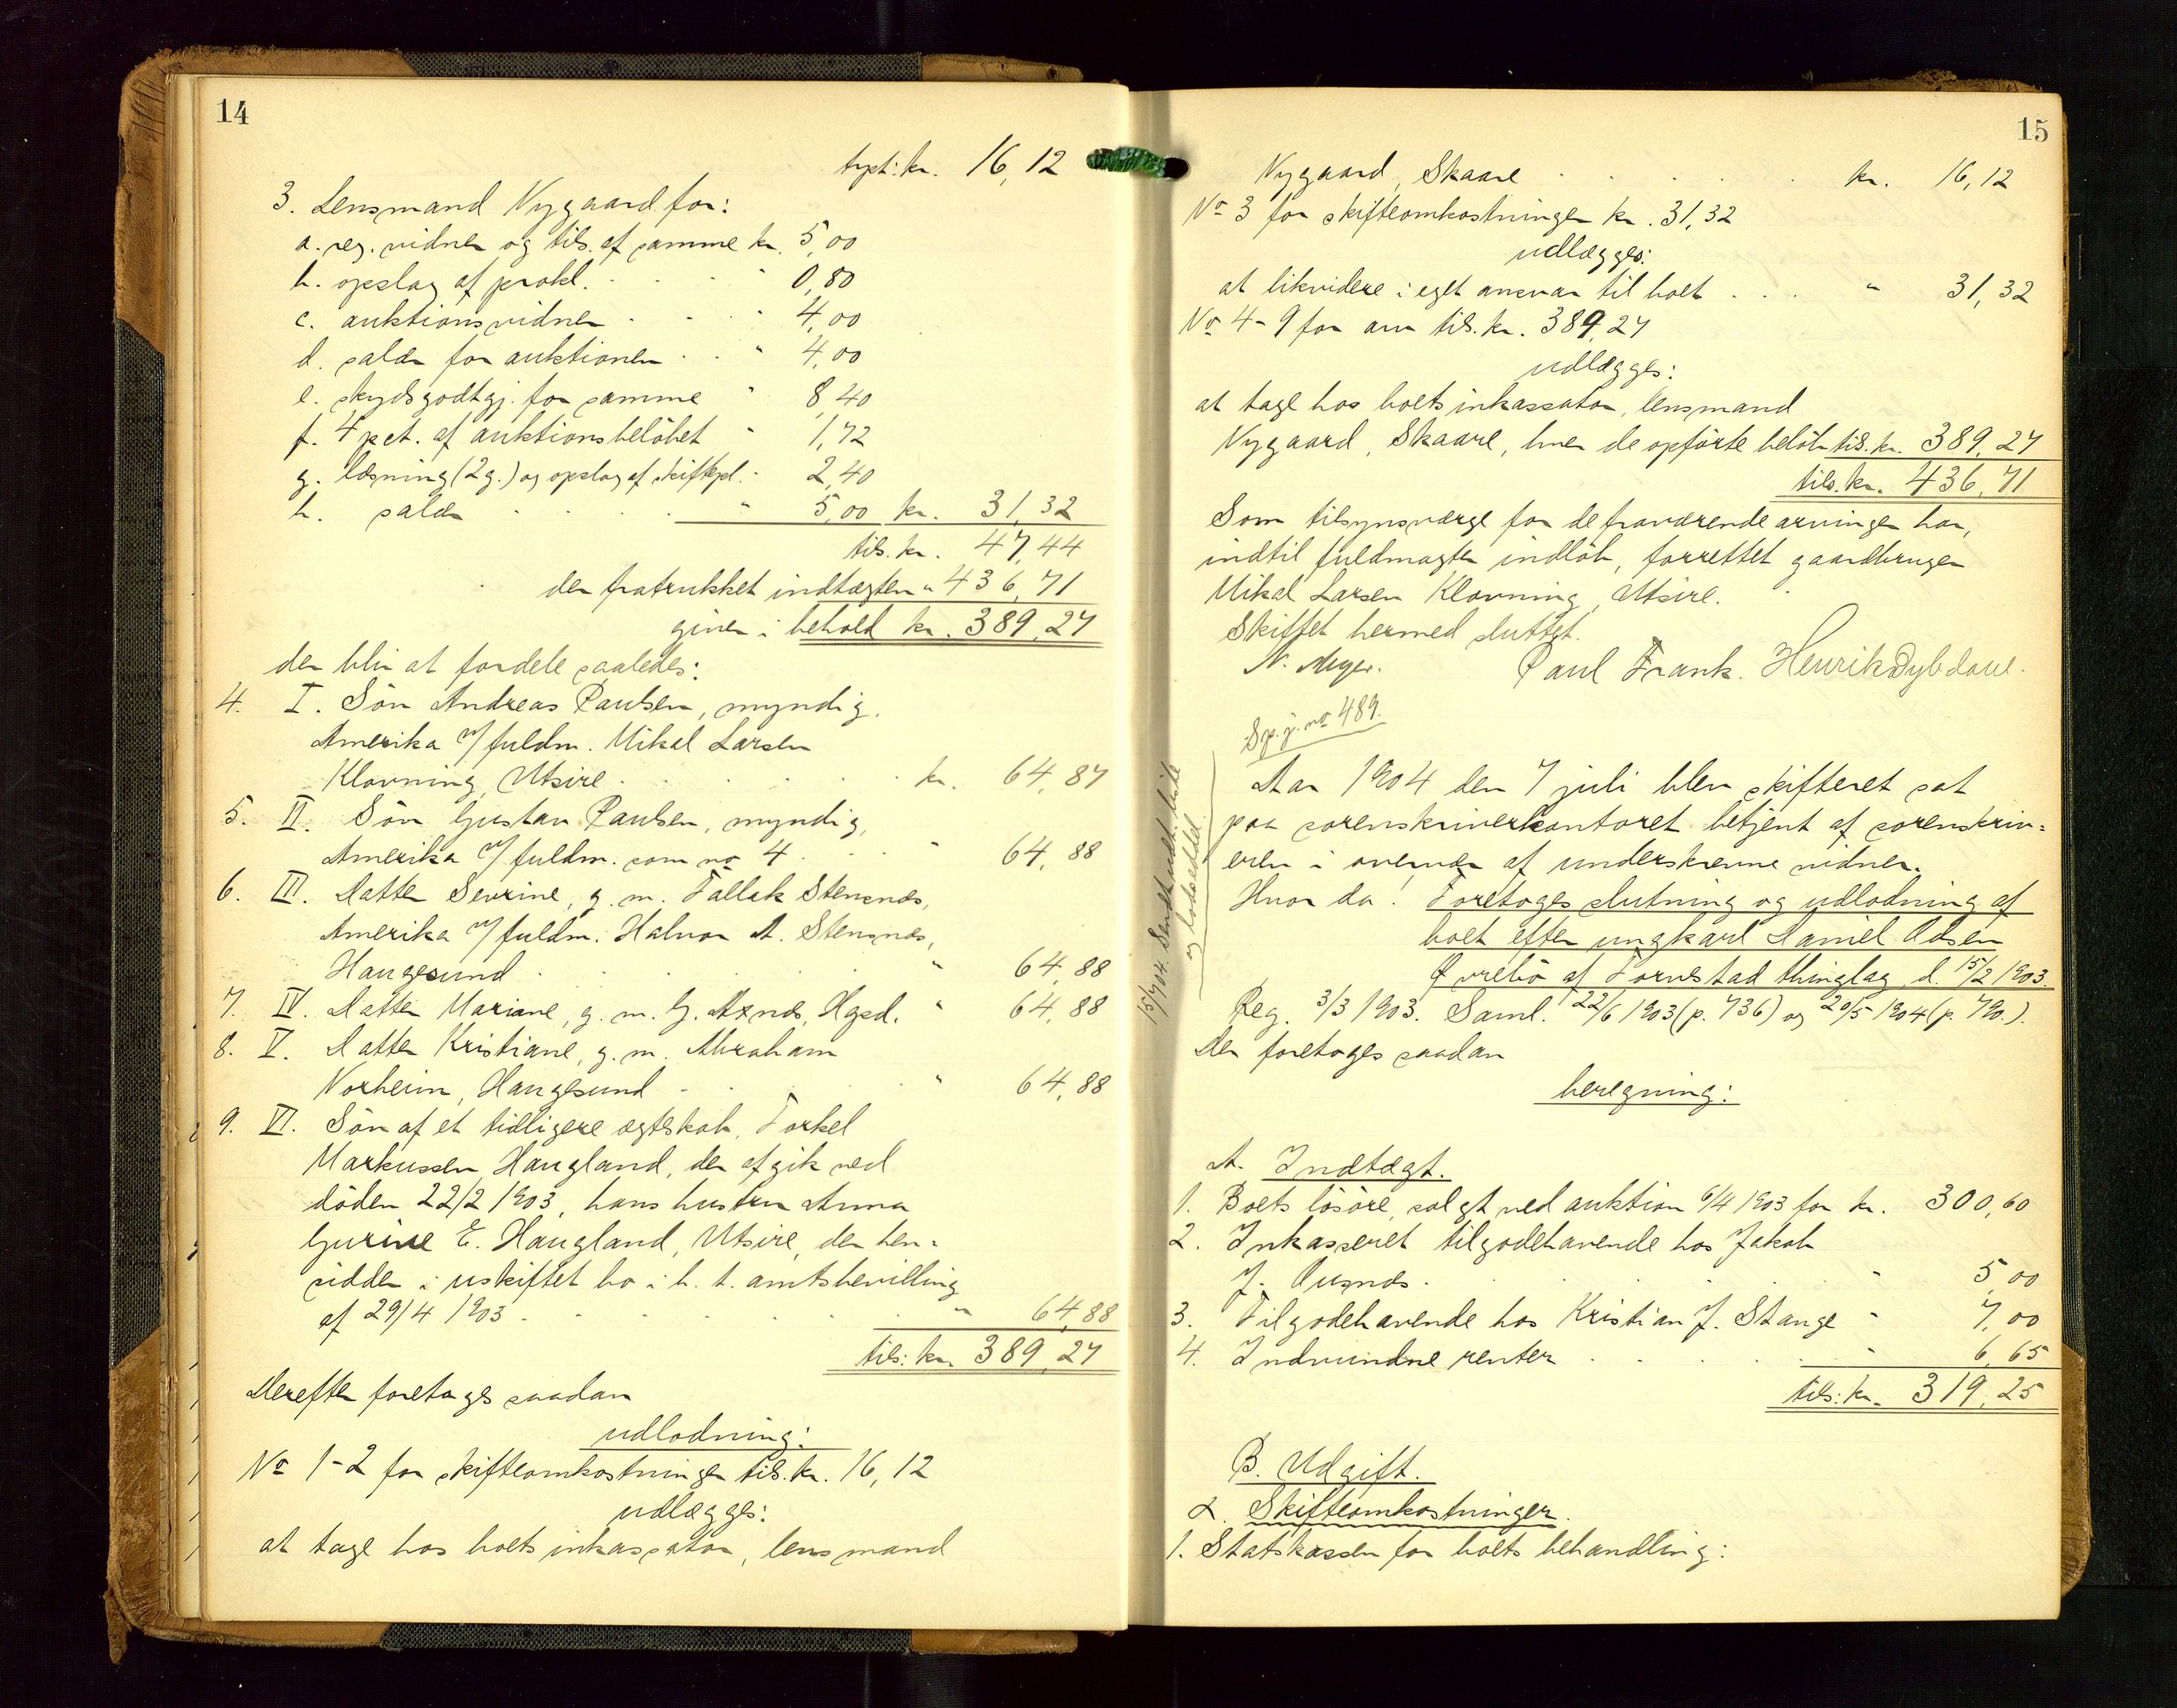 14
trpt: kr. 16,12
3. Lensmand Nygaard for:
a. reg. vidner og tils. af samme kr. 5,00
b. opslag af prokl. . . . " 0,80
c. auktionsvidner . . . " 4,00
d. salær for auktionen . . " 4,00
e. skydsgodtgj. for samme " 8,40
f. 4 pct. af auktionsbeløbet " 1,72
g. læsning (2 g.) og opslag af skiftepl. " 2,40
h. salær . . . " 5,00 kr. 31,32
tils. kr. 47,44
der fratrukket indtægten " 436,71
giver i behold kr. 389,27
der blir at fordele saaledes:
4. I. Søn Andreas Paulsen, myndig,
Amerika v/ fuldm. Mikal Larsen
Klovning, Utsire . . . kr. 64,87
5. II. Søn Gustav Paulsen, myndig,
Amerika v/ fuldm. som no 4 . . . " 64,88
6. III. Datter Sevrine, g. m. Tallak Stensnæs,
Amerika v/ fuldm. Halvor A. Stensnæs,
Haugesund . . . " 64,88
7. IV. Datter Mariane, g. m. G. Axnæs, Hgsd. " 64,88
8. V. Datter Kristiane, g. m. Abraham
Norheim, Haugesund . . . " 64,88
9. VI. Søn af et tidligere ægteskab, Torkel
Markussen Haugland, der afgik ved
døden 22/2 1903, hans hustru Anna
Gurine E. Haugland, Utsire, der hen-
sidder i uskiftet bo i h. t. amtsbevilling
af 29/4 1903 . . . " 64,88
tils: kr. 389,27
Derefter foretoges saadan
udlodning:
No 1-2 for skifteomkostninger tils. kr. 16,12
udlægges:
at tage hos boets inkassator, lensmand
15
Nygaard, Skaare . . . kr. 16,12
No 3 for skifteomkostninger kr. 31,32
udlægges:
at likvidere i eget ansvar til boet . . . " 31,32
No 4-9 for arv tils. kr. 389,27
udlægges:
at tage hos boets inkassator, lensmand
Nygaard, Skaare, hver de opførte beløb tils. kr. 389,27
tils. kr. 436,71
Som tilsynsværge for de fraværende arvinger har,
indtil fuldmagter indløb, forrettet gaardbruger
Mikal Larsen Klovning, Utsire.
Skiftet hermed sluttet.
N. Meyer. Paul Frank. Henrik Dybdahl.
Sp. j. no 489.
15/7 04. Sendt udt. liste
og lodseddel
Aar 1904 den 7 juli blev skifteret sat
paa sorenskriverkontoret betjent af sorenskriv-
eren i overvær af underskrevne vidner.
Hvor da! Foretoges slutning og udlodning af
boet efter ungkarl Daniel Olsen
Øvrebø af Torvestad thinglag, d. 15/2 1903.
Reg. 3/3 1903. Saml. 22/6 1903 (p. 736) og 20/5 1904 (p. 790.).
Der foretoges saadan
beregning:
A. Indtægt.
1. Boets løsøre, solgt ved auktion 6/4 1903 for kr. 300,60
2. Inkasseret tilgodehavende hos Jakob
J. Ausnæs . . . " 5,00
3. Tilgodehavende hos Kristian J. Stange " 7,00
4. Indvundne renter . . . " 6,65
tils: kr. 319,25
B. Udgift.
α. Skifteomkostninger.
1. Statskassen for boets behandling: